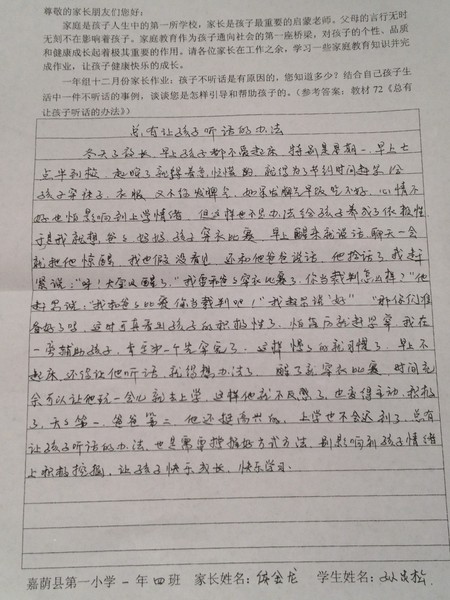 尊敬的家长朋友们您好：
家庭是孩子人生中的第一所学校，家长是孩子最重要的启蒙老师。父母的言行无时
无刻不在影响着孩子。家庭教育作为孩子通向社会的第一座桥梁，对孩子的个性、品质
和健康成长起着极其重要的作用。请各位家长在工作之余，学习一些家庭教育知识并完
成作业，让孩子健康快乐的成长。
一年组十二月份家长作业：孩子不听话是有原因的，您知道多少？结合自己孩子生
活中一件不听话的事例，谈谈您是怎样引导和帮助孩子的。（参考答案：教材 72《总有
让孩子听话的办法》）
总有让孩子听话的办法
冬天了夜长，早上孩子都不爱起床，特别是星期一，早上七
点半到校，起晚了就
孩子穿袜子、衣服，又不能发脾气，如果发脾气早饭吃不好，心情不
好也怕影响到上学情绪，但这样也不是办法给孩子养成了依赖性
于是我就想
就把他惊醒，我也假没看见，还和他爸爸说话，他抢话了，我赶
紧说："呀！大宝贝醒了，"我要和爸爸穿衣比赛了，你当裁判怎么样？"他
赶忙说："我和爸爸比赛你当裁判吧！"我赶忙说"好" "那你们准
备好了吗，这时可真看到孩子的积极性了，怕落后就赶紧穿，我在
一旁辅助孩子，幸亏第一个先穿完了。这样慢慢的就习惯了，早上不
起床，还能让他听话，我就得想办法了。醒了就穿衣比赛，时间充
余可以让他玩一会儿就去上学，这样他就不反感了，也变得主动、积极
了，天天第一，爸爸第二，他还挺高兴的，上学也不会迟到了，总有
让孩子听话的办法，也是需要挖掘好方式方法，别影响到孩子情绪
上积极挖掘，让孩子快乐成长，快乐学习。
嘉荫县第一小学一年四班 家长姓名： 学生姓名：